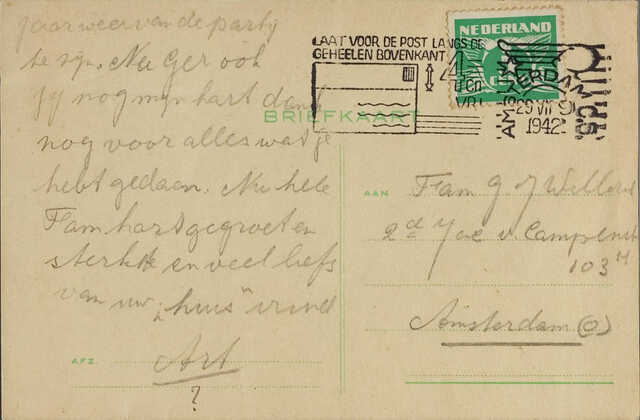 jaar weer van de party
te zijn. Nu Ger ook
jij nog mijn hart dank
nog voor alles wat je
hebt gedaan. Nu hele
Fam hart gegroet en
sterkte en veel liefs
van uw "huis" vriend
Art
?
AFZ.
LAAT VOOR DE POST LANGS DE
GEHEELEN BOVENKANT
NEDERLAND
AMSTERDAM
29 VII
1942
BRIEFKAART
AAN
Fam G
2d v. Campenstr
103 H
Amsterdam (O)